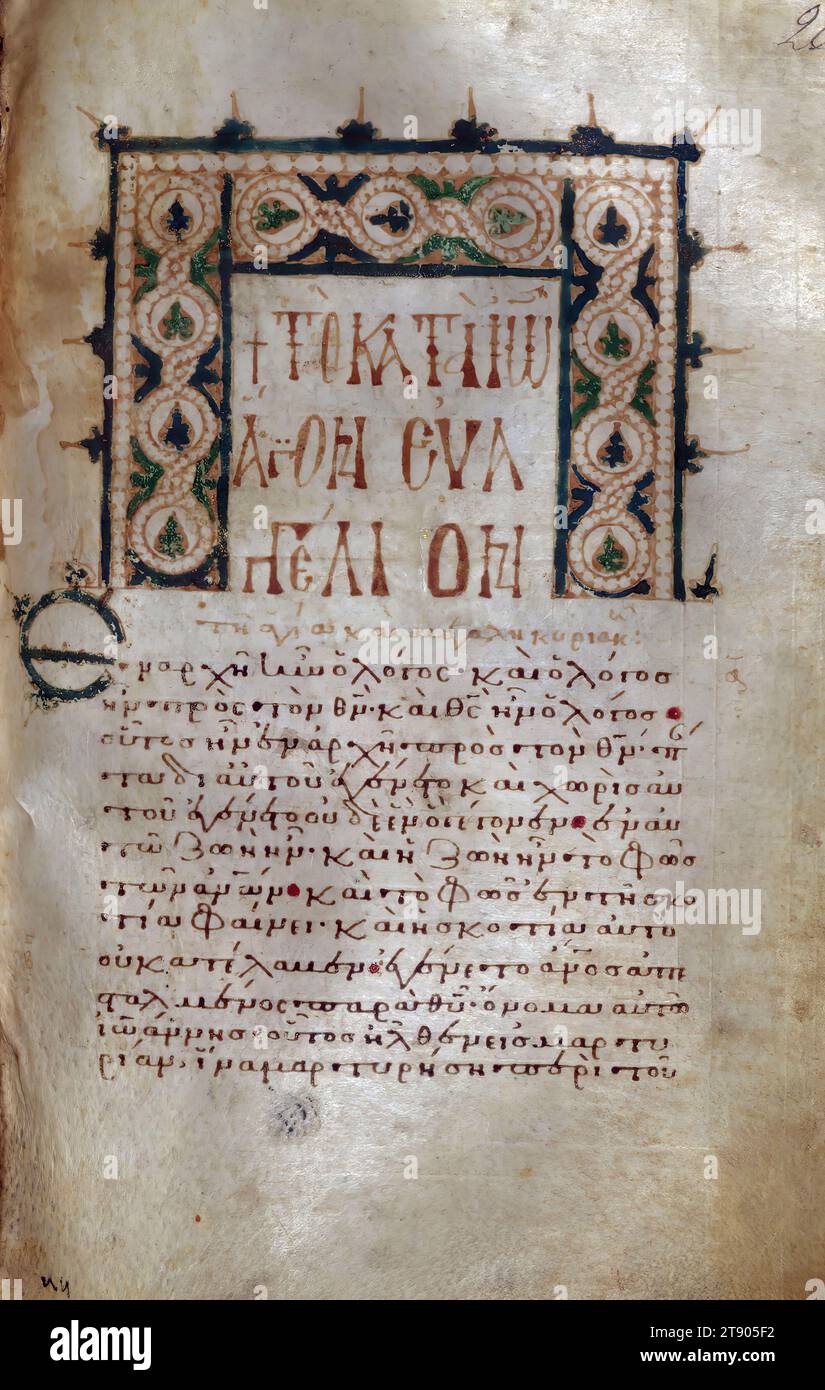 20
† ΤῸ ΚΑΤᾺ ΙΩ̅
ἍΓΙΟΝ ἘΥΑ
ΓΓΈΛΙΟΝ
τῆ ἁγία καὶ μεγάλη κυριακ:
Ἐν ἀρχῆ ἦν ὁ λόγος· καὶ ὁ λόγος
ἦν πρὸς τὸν θ̅ν̅· καὶ θ̅ς̅ ἦν ὁ λόγος
οὗτος ἦν ἐν ἀρχῆ πρὸς τὸν θ̅ν̅· πά
ντα δι αὐτοῦ ἐγένετο καὶ χωρὶς αυ
τοῦ ἐγένετο οὐδὲ ἓν ὃ γέγονεν ἐν αυ
τῶ ζωὴ ἦν· καὶ ἡ ζωὴ ἦν τὸ φῶς
τῶν ἀν̅ω̅ν̅ καὶ τὸ φῶς ἐν τῆ σκο
τία φαίνει· καὶ ἡ σκοτία αυτο
οὐ κατέλαβεν ἐγένετο ἄν̅ο̅ς̅ ἀπε
σταλμένος παρὰ θ̅υ̅· ὄνομα αυτῶ
ἰωάννης· οὗτος ἦλθεν εἰς μαρτυ
ρίαν· ἵνα μαρτυρήση περὶ τοῦ
alamy
Image ID: 2T905F2
www.alamy.com